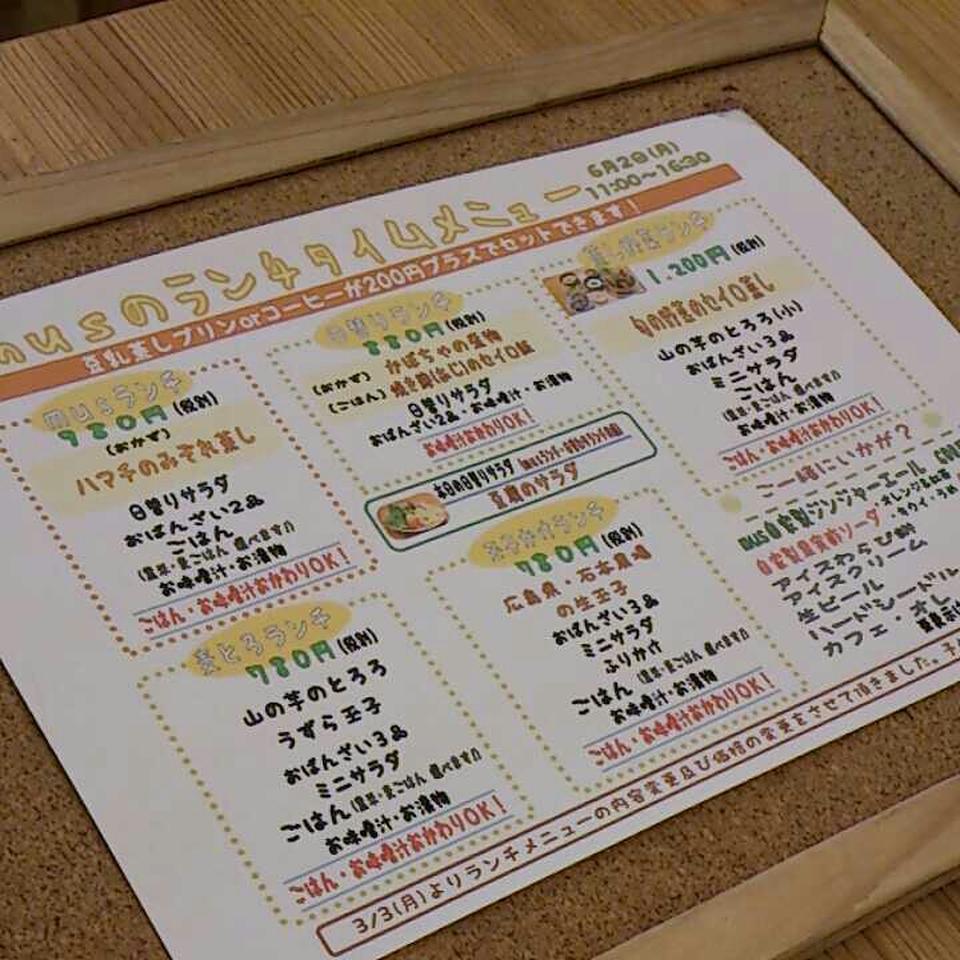 musのランチタイムメニュー
6月2日(月)
11:00〜16:30
豆乳蒸しプリンorコーヒーが200円プラスでセットできます!
musランチ
980円(税別)
(おかず)
ハマチのみぞれ蒸し
日替りサラダ
おばんざい2品
ごはん
(豆菜・麦ごはん 選べます♪)
お味噌汁・お漬物
ごはん・お味噌汁おかわりOK!
日替りランチ
880円(税別)
(おかず) かぼちゃの煮物
(ごはん)
日替りサラダ
おばんざい2品・お味噌汁・お漬物
お味噌汁おかわりOK!
本日の日替りサラダ
豆腐のサラダ
蒸し野菜ランチ
1,200円(税別)
旬の野菜のセイロ蒸し
山の芋のとろろ(小)
おばんざい3品
ミニサラダ
ごはん
お味噌汁・お漬物
ごはん・お味噌汁おかわりOK!
麦とろランチ
780円(税別)
山の芋のとろろ
うずら玉子
おばんざい3品
ミニサラダ
ごはん
お味噌汁・お漬物
ごはん・お味噌汁おかわりOK!
玉子かけランチ
780円(税別)
広島県・石本農場
の生玉子
おばんざい3品
ミニサラダ
ふりかけ
ごはん
お味噌汁・お漬物
ごはん・お味噌汁おかわりOK!
ご一緒にいかが?
mus自家製ジンジャーエール
自家製果実酢ソーダ
アイスわらび餅
アイスクリーム
生ビール
ハードシードル
カフェ・オレ
3/3(月)よりランチメニューの内容変更及び価格の変更をさせて頂きました。